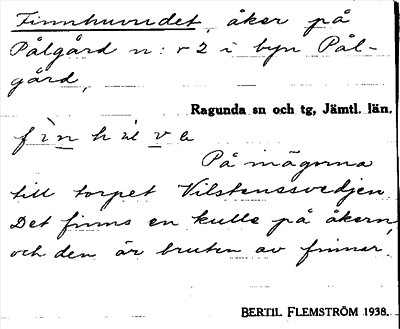 Finnhuvudet, åker på
Pålgård n:r 2 i byn Pål-
gård,
Ragunda sn och tg, Jämtl. län.
På ägorna
till torpet Vilstensvedjen
Det finns en kulle på åkern
och den är bruten av finnar.
BERTIL FLEMSTRÖM 1938.